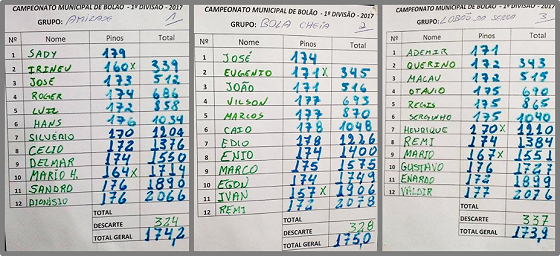 CAMPEONATO MUNICIPAL DE BOLÃO - 1ª DIVISÃO - 2017
GRUPO: AMIZADE 1
Nº Nome Pinos Total
1 SADY 179
2 IRINEU 160 x 339
3 JOSÉ 173 512
4 ROGER 174 686
5 LUIZ 172 858
6 HANS 176 1034
7 SILVÉRIO 170 1204
8 CELIO 172 1376
9 DELMAR 174 1550
10 MARIO H. 164 x 1714
11 SANDRO 176 1890
12 DIONISIO 176 2066
TOTAL
DESCARTE 324
TOTAL GERAL 174,2
CAMPEONATO MUNICIPAL DE BOLÃO - 1ª DIVISÃO - 2017
GRUPO: BOLA CHEIA 2
Nº Nome Pinos Total
1 JOSÉ 174
2 EUGENIO 171 x 345
3 JOÃO 171 516
4 VILSON 177 693
5 MARCOS 177 870
6 CAIO 178 1048
7 EDIO 178 1226
8 ENIO 174 1400
9 MARCO 175 1575
10 EGON 174 1749
11 IVAN 157 x 1906
12 REMI 172 2078
TOTAL
DESCARTE 328
TOTAL GERAL 175,0
CAMPEONATO MUNICIPAL DE BOLÃO - 1ª DIVISÃO - 2017
GRUPO: LOBÃO DA SERRA 3
Nº Nome Pinos Total
1 ADEMIR 171
2 QUERINO 172 343
3 MALAU 172 515
4 OTAVIO 175 690
5 REGIS 175 865
6 SERGINHO 175 1040
7 HENRIQUE 170 x 1210
8 REMI 174 1384
9 MARIO 167 x 1551
10 GUSTAVO 176 1727
11 ENARDO 172 1899
12 VALDIR 177 2076
TOTAL
DESCARTE 337
TOTAL GERAL 173,9